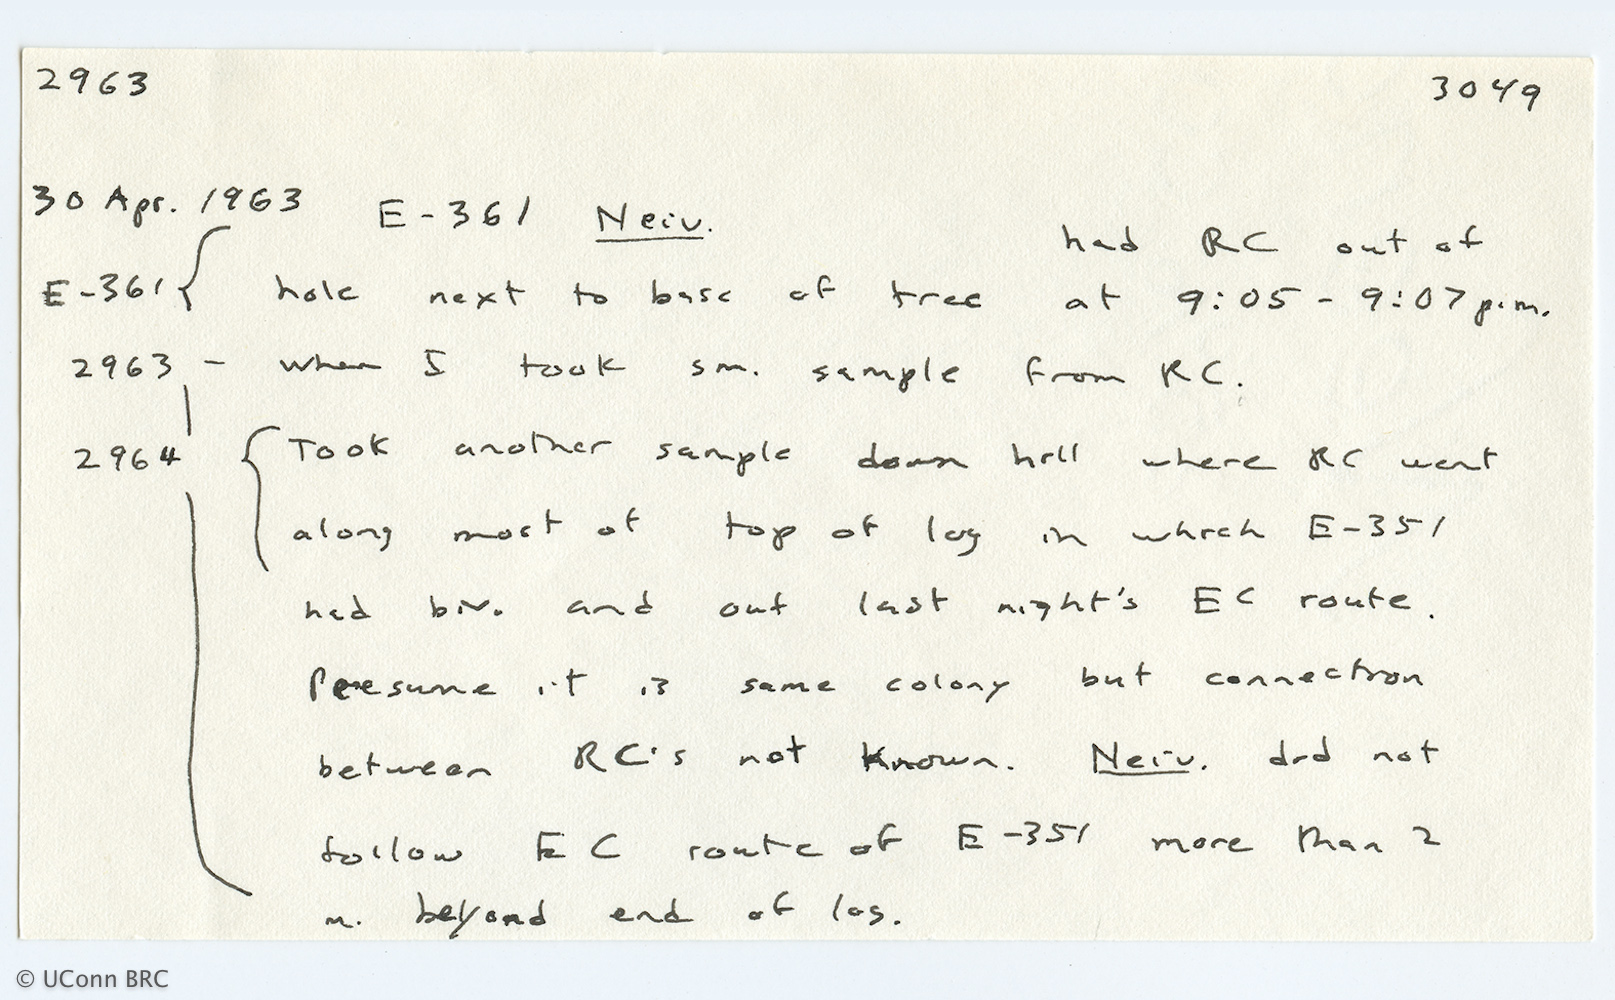 2963 3049
30 Apr. 1963 E-361 Neiv. had RC out of
E-361 { hole next to base of tree at 9:05 - 9:07 p.m.
2963 - when I took sm. sample from RC.
2964 { Took another sample down hill where RC went
along most of top of log in which E-351
had biv. and out last night's EC route.
Presume it is same colony but connection
between RC's not known. Neiv. did not
follow EC route of E-351 more than 2
m. beyond end of log.
© UConn BRC